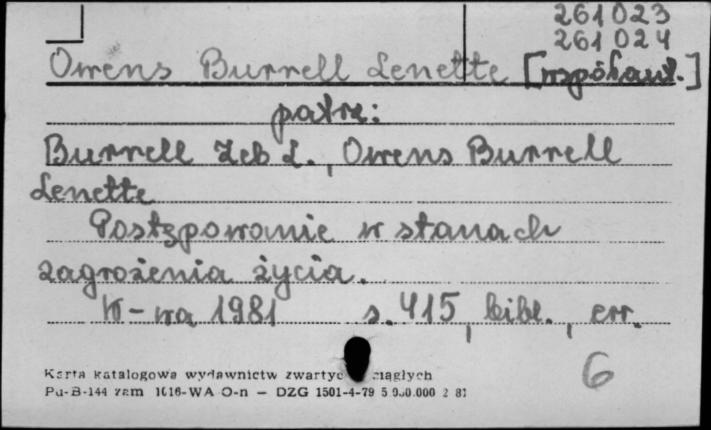 261023
261024
Owens Burrell Lenette [współaut.]
patrz:
Burrell Zeb L., Owens Burrell
Lenette
Postępowanie w stanach
zagrożenia życia.
W-wa 1981 s. 415, bibl., err.
6
Karta katalogowa wydawnictw zwartych ciągłych
Pu-B-144 zam 1616-WA O-n — DZG 1501-4-79 2 81